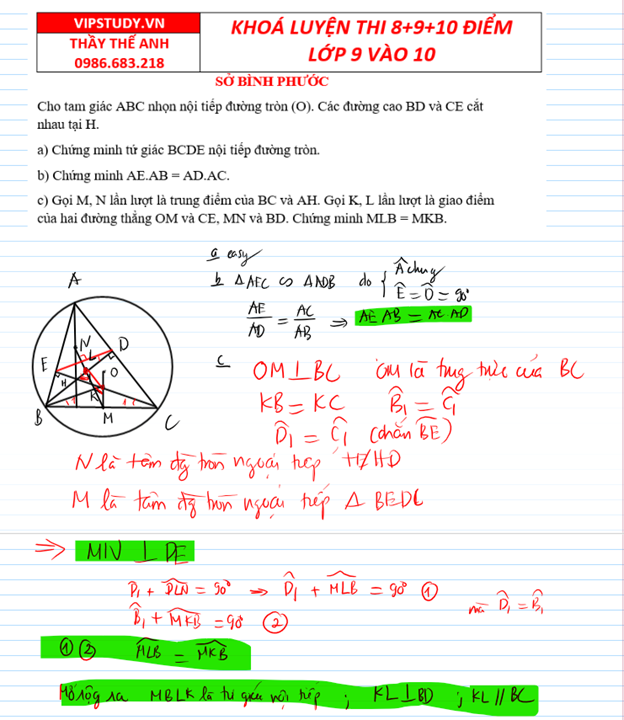 VIPSTUDY.VN
THẦY THẾ ANH
0986.683.218
KHOÁ LUYỆN THI 8+9+10 ĐIỂM
LỚP 9 VÀO 10
SỞ BÌNH PHƯỚC
Cho tam giác ABC nhọn nội tiếp đường tròn (O). Các đường cao BD và CE cắt
nhau tại H.
a) Chứng minh tứ giác BCDE nội tiếp đường tròn.
b) Chứng minh AE.AB = AD.AC.
c) Gọi M, N lần lượt là trung điểm của BC và AH. Gọi K, L lần lượt là giao điểm
của hai đường thẳng OM và CE, MN và BD. Chứng minh MLB = MKB.
a easy
b Δ AEC ∽ Δ ADB do { Â chung
Ê = D̂ = 90°
AE/AD = AC/AB ⇒ AE AB = AC AD
A
N
L
D
E
H
O
K
B
M
C
c OM ⊥ BC OM là trung trực của BC
KB = KC B̂₁ = Ĉ₁
D̂₁ = Ĉ₁ (chắn BE)
N là tâm đg tròn ngoại tiếp
M là tâm đg tròn ngoại tiếp Δ BEDC
⇒ MN ⊥ DE
D₁ + DLN = 90° ⇒ D̂₁ + MLB = 90° ①
B̂₁ + MKB = 90° ② mà D̂₁ = B̂₁
① ② MLB = MKB
Mở rộng ra MBLK là tứ giác nội tiếp ; KL ⊥ BD ; KL // BC